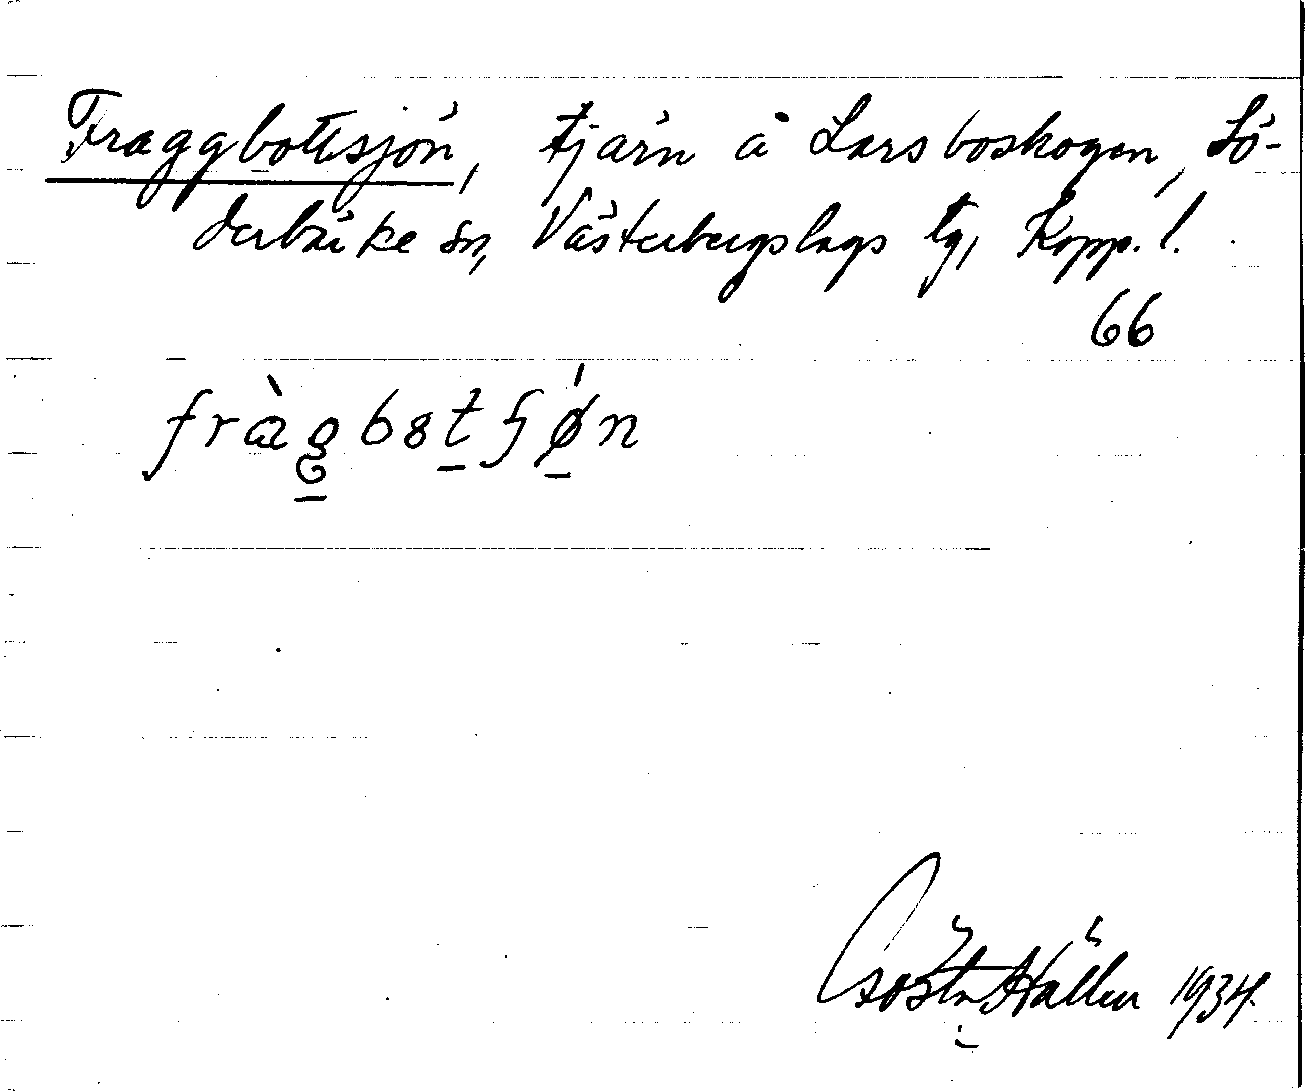 Fraggbottsjön, tjärn å Larsboskogen, Sö-
derbärke sn, Västerbergslags tg, Kopp. l.
66
Gösta Hållen 1934.